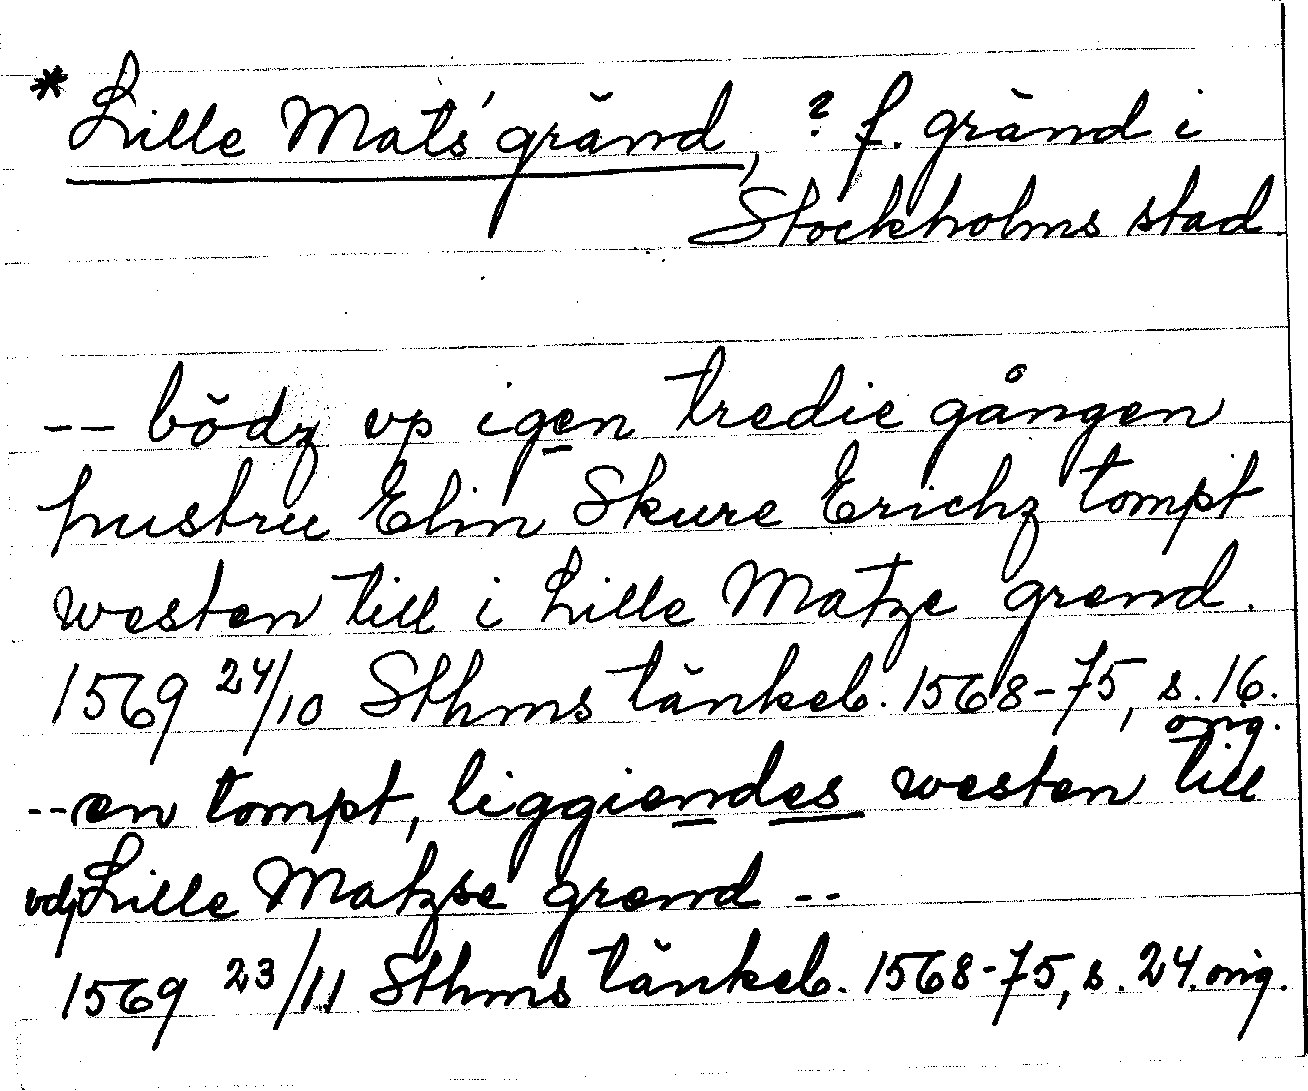 * Lille Mats' gränd, ? f. gränd i
Stockholms stad
-- bödz vp igen tredie gången
hustru Elin Skure Erichz tompt
westen till i Lille Matze grend.
1569 24/10 Sthms tänkeb. 1568-75, s. 16.
orig.
-- en tompt, liggiendes westen till
vdj Lille Matzse grend --
1569 23/11 Sthms tänkeb. 1568-75, s. 24. orig.